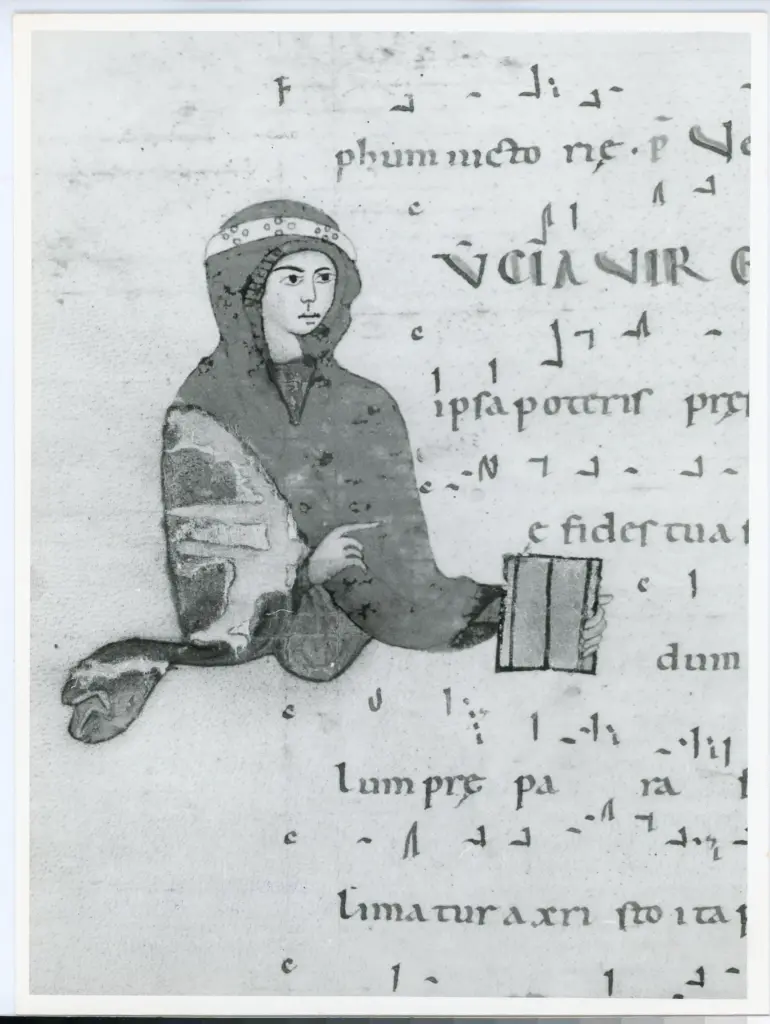 phum uicto rię. p̄ Ve
V̄CIA VIR G
ipsa poteris pręs
e fides tua s
dum
lum prę pa ra
lima tur a xri sto ita p